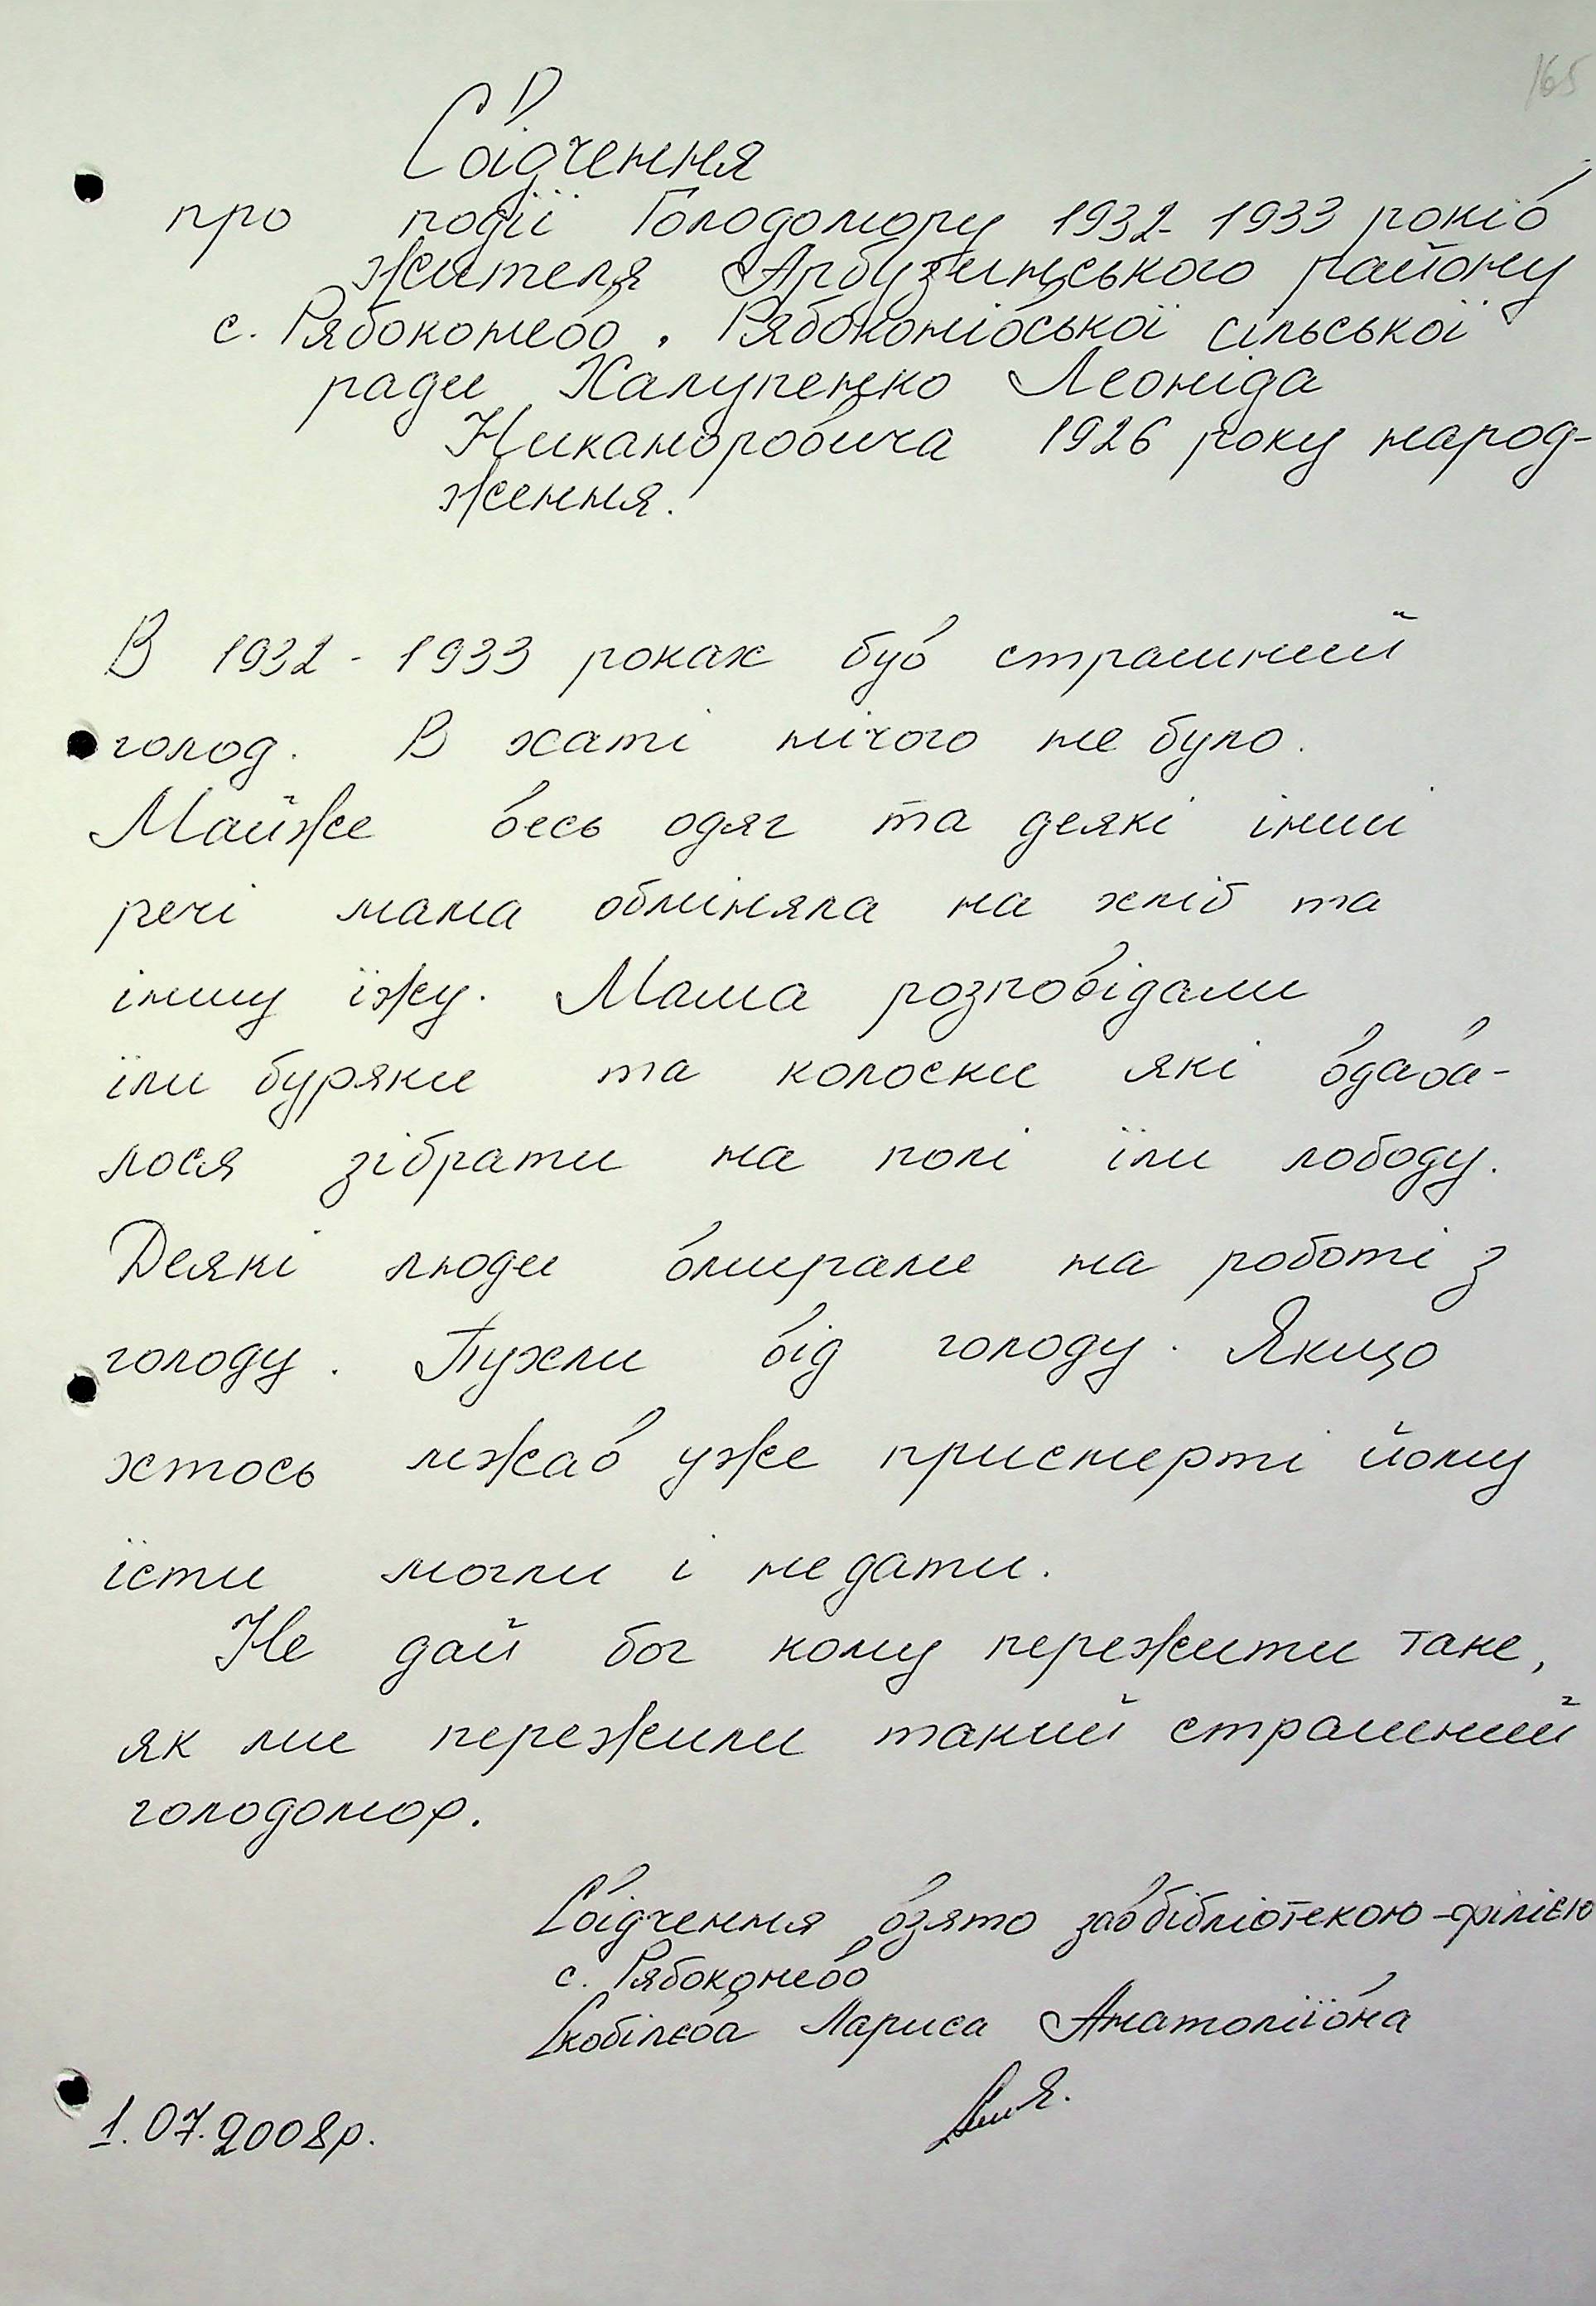 165
Свідчення
про події Голодомору 1932-1933 років
жителя Арбузинського району
с. Рябоконево, Рябоконівської сільської
ради Халупенко Леоніда
Никаноровича 1926 року народ-
ження.
В 1932-1933 роках був страшний
голод. В хаті нічого не було.
Майже весь одяг та деякі інші
речі мама обміняла на хліб та
іншу їжу. Мама розповідали
їли буряки та колоски які вдава-
лося зібрати на полі їли лободу.
Деякі люди вмирали на роботі з
голоду. Пухли від голоду. Якщо
хтось лежав уже присмерті йому
їсти могли і не дати.
Не дай бог кому пережити таке,
як ми пережили такий страшний
голодомор.
Свідчення взято зав бібліотекою-філією
с. Рябоконево
Скобілєва Лариса Анатоліївна
1.07.2008р.